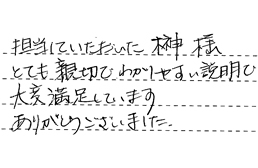 担当していただいた 榊 様
とても親切でわかりやすい説明で
大変満足しています
ありがとうございました。